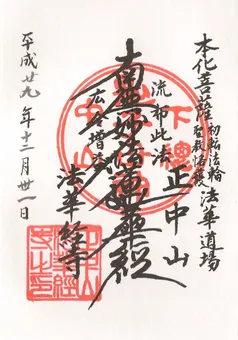 本化菩薩初転法輪
聖教格護
法華道場
正中山
流布此法
南無妙法蓮華経
広令増益
法華経寺
平成廿九年十二月廿一日